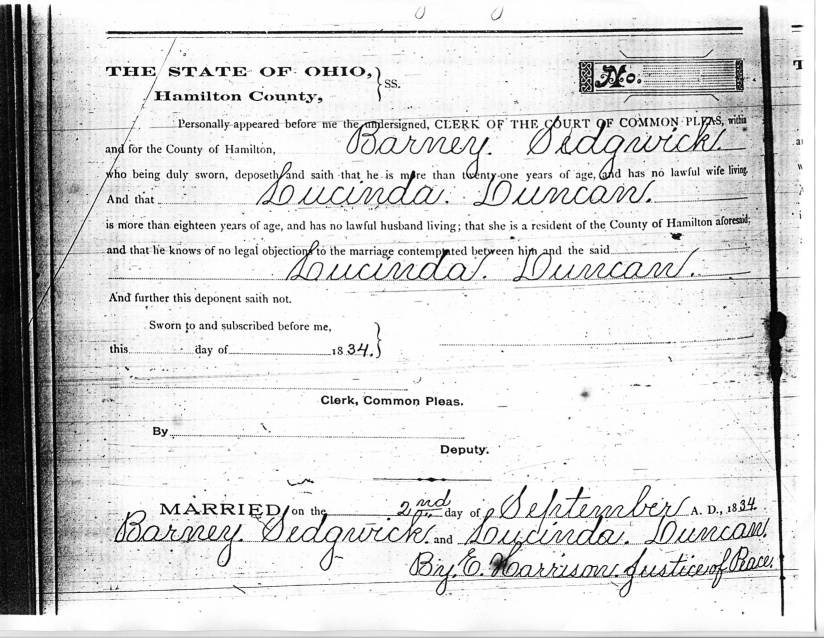 THE STATE OF OHIO,
Hamilton County,
} SS.
No.
Personally appeared before me the undersigned, CLERK OF THE COURT OF COMMON PLEAS, within
and for the County of Hamilton, Barney. Sedgwick.
who being duly sworn, deposeth and saith that he is more than twenty-one years of age, and has no lawful wife living.
And that Lucinda. Duncan.
is more than eighteen years of age, and has no lawful husband living; that she is a resident of the County of Hamilton aforesaid;
and that he knows of no legal objections to the marriage contemplated between him and the said
Lucinda. Duncan.
And further this deponent saith not.
Sworn to and subscribed before me,
this day of 1834. }
Clerk, Common Pleas.
By
Deputy.
MARRIED on the 2nd day of September A. D., 1834.
Barney. Sedgwick and Lucinda. Duncan.
By. E. Harrison. Justice of Peace.